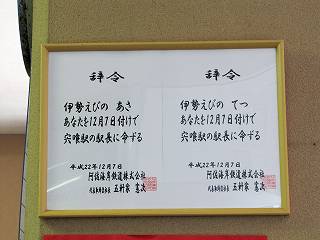 辞令
伊勢えびの あさ
あなたを12月7日付けで
宍喰駅の駅長に命ずる
平成22年12月7日
阿佐海岸鉄道株式会社
代表取締役社長 五軒家 憲次
辞令
伊勢えびの てつ
あなたを12月7日付けで
宍喰駅の駅長に命ずる
平成22年12月7日
阿佐海岸鉄道株式会社
代表取締役社長 五軒家 憲次